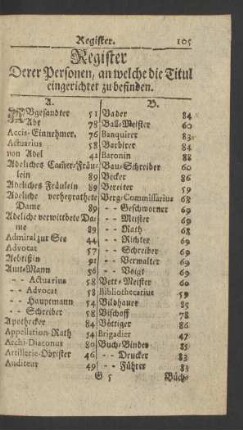 Register. 105
Register
Derer Personen, an welche die Titul
eingerichtet zu befinden.
A.
Abgesandter 51
Abt 78
Accis-Einnehmer. 76
Actuarius 58
von Adel 41
Adeliches Cammer-Fräu-
lein 89
Adeliches Fräulein 89
Adeliche verheyrathete
Dame 89
Adeliche verwittbete Da-
me 89
Admiral zur See 44
Advocat 57
Aebtißin 91
Amts-Mann 56
-- Actuarius 58
-- Advocat 58
-- Hauptmann 54
-- Schreiber 58
Apothecker 84
Appellation-Rath 54
Archi-Diaconus 80
Artillerie-Obrister 46
Auditeur 49
B.
Bader 84
Ball-Meister 60
Banquirer 83
Barbirer 84
Baronin 88
Bau-Schreiber 60
Becker 86
Bereiter 59
Berg-Commissarius 68
-- Geschworner 69
-- Meister 69
-- Rath 68
-- Richter 69
-- Schreiber 69
-- Verwalter 69
-- Voigt 69
Bette-Meister 60
Bibliothecarius 59
Bildhauer 85
Bischoff 78
Böttiger 86
Brigadier 47
Buch-Binder 85
-- Drucker 83
-- Führer 83
G 5 Büch-